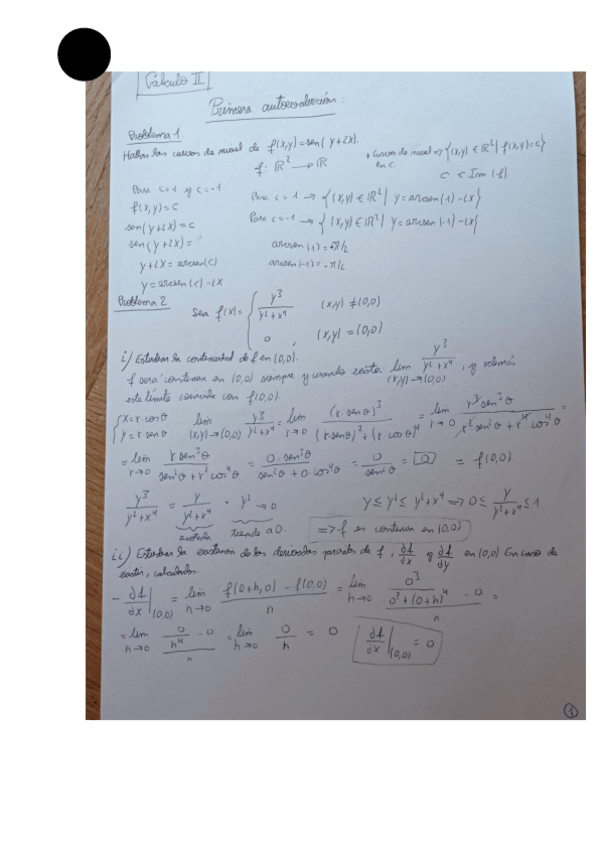 Cálculo II
Primera autoevaluación.
Problema 1.
Hallar las curvas de nivel de f(x,y)=sen(y+2x).
f: ℝ² → ℝ
* Curvas de nivel => {(x,y) ∈ ℝ² | f(x,y)=c}
en c.
c ∈ Im(f)
Para c=1 y c=-1
f(x,y)=c
sen(y+2x)=c
sen(y+2x)=
y+2x = arcsen(c)
y = arcsen(c) -2x
Para c=1 → {(x,y) ∈ ℝ² | y = arcsen(1) -2x}
Para c=-1 → {(x,y) ∈ ℝ² | y = arcsen(-1) -2x}
arcsen(1) = π/2
arcsen(-1) = -π/2
Problema 2
Sea f(x) = { y³/(y²+x⁴) (x,y) ≠ (0,0)
0, (x,y) = (0,0)
i) Estudiar la continuidad de f en (0,0).
f será continua en (0,0) siempre y cuando exista lim (x,y)→(0,0) y³/(y²+x⁴), y además
este límite coincida con f(0,0).
{x = r·cosθ
y = r·senθ
lim (x,y)→(0,0) y³/(y²+x⁴) = lim r→0 (r·senθ)³/((r·senθ)²+(r·cosθ)⁴) = lim r→0 r³sen³θ/(r²sen²θ + r⁴cos⁴θ) =
= lim r→0 r sen³θ/(sen²θ + r²cos⁴θ) = 0·sen³θ/(sen²θ + 0·cos⁴θ) = 0/sen²θ = 0 = f(0,0).
y³/(y²+x⁴) = y/(y²+x⁴) · y² → 0
acotada tiende a 0.
y ≤ y² ≤ y²+x⁴ => 0 ≤ y/(y²+x⁴) ≤ 1
=> f es continua en (0,0)
ii) Estudiar la existencia de las derivadas parciales de f, ∂f/∂x y ∂f/∂y en (0,0). En caso de
existir, calcularlas.
- ∂f/∂x |(0,0) = lim h→0 (f(0+h,0) - f(0,0))/h = lim h→0 (0³/(0²+(0+h)⁴) - 0)/h =
= lim h→0 (0/h⁴ - 0)/h = lim h→0 0/h = 0
∂f/∂x |(0,0) = 0
1